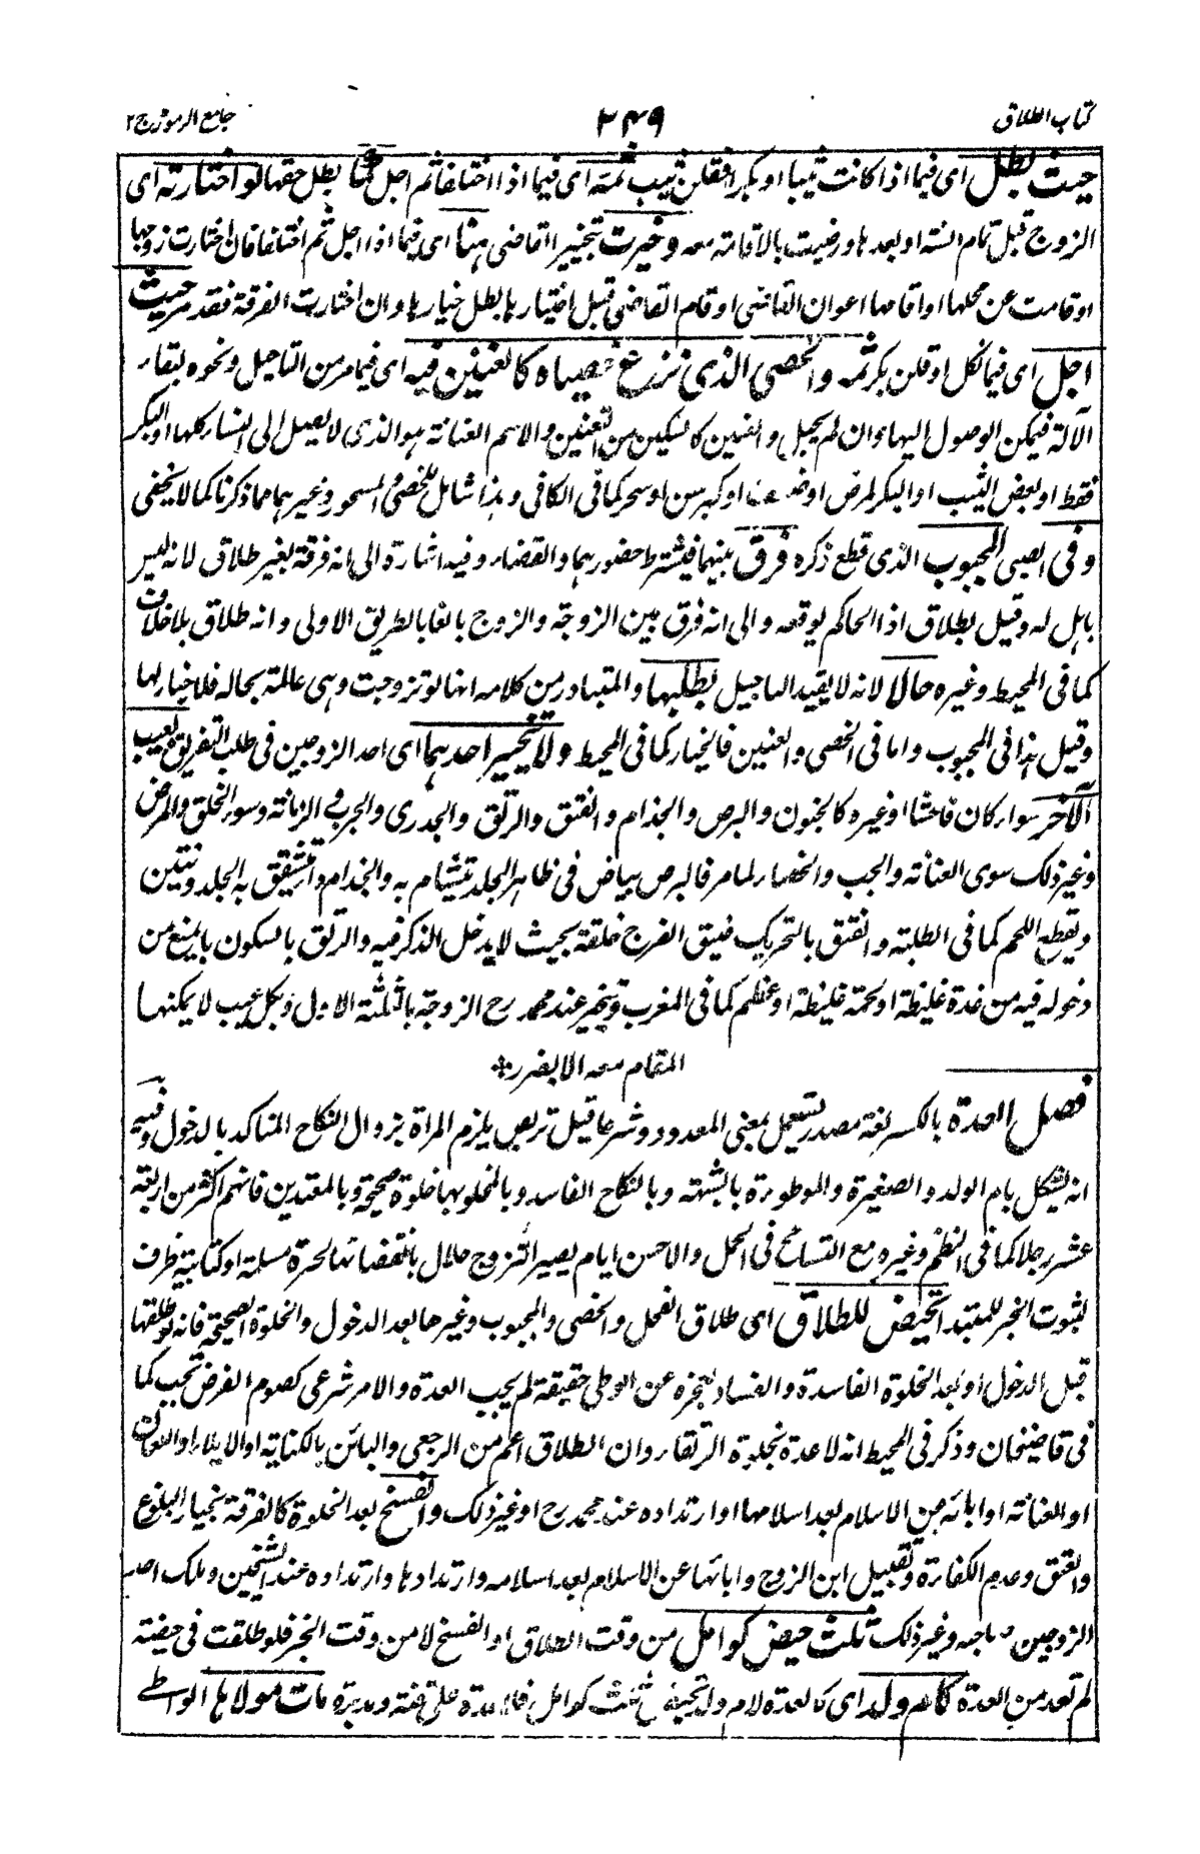 كتاب الطلاق
٣٤٩
جامع الرموز ج٢
حيث بطل اى فيما اذا كانت ثيبا او بكرا فقلن ثيب ثمه اى فيما اذا اختلفا ثم اجل كما بطل حقها لو اختارته اى
الزوج قبل تمام السنة او بعدها ورضيت بالاقامة معه وخيرت بتخيير القاضى هنا اى فيما اذا اجل ثم اختلفا فان اختارت زوجها
او قامت عن محلها او اقامها اعوان القاضى او قام القاضى قبل اختيارها بطل خيارها وان اختارت الفرقة فقد مر حيث
اجل اى فيما نكل او قلن بكر ثمه والخصى الذى نزع خصياه كالعنين فيه اى فيما مر من التاجيل ونحوه لبقاء
الآلة فيمكن الوصول اليها وان لم يحبل والعنين كالسكين من التعنين والاسم العنانة هو الذى لا يصل الى النساء كلها او البكر
فقط او بعض الثيب او البكر لمرض او ضعف او كبر سن او سحر كما فى الكافى وهذا شامل للخصى والمسحور وغيرهما مما ذكرنا كما لا يخفى
وفى الصبى المجبوب الذى قطع ذكره فرق بينهما فيشترط حضورهما والقضاء وفيه اشارة الى انه فرقة بغير طلاق لانه ليس
باهل له وقيل بطلاق اذ الحاكم يوقعه والى انه فرق بين الزوجة والزوج بالغا بالطريق الاولى وانه طلاق بلا خلاف
كما فى المحيط وغيره حالا لانه لا يفيد التاجيل بطلبها والمتبادر من كلامه انها لو تزوجت وهى عالمة بحاله فلا خيار لها
وقيل هذا فى المجبوب واما فى الخصى والعنين فالخيار كما فى المحيط ولا يتخير احدهما اى احد الزوجين فى طلب التفريق بعيب
الآخر سواء كان فاحشا او غيره كالجنون والبرص والجذام والفتق والرتق والجدرى والجرب والزمانة وسوء الخلق والمرض
وغير ذلك سوى العنانة والجب والخصاء لما مر فالبرص بياض فى ظاهر الجلد يتشام به والجذام داء يتشقق به الجلد وينتن
ويقطع اللحم كما فى الطلبة والفتق بالتحريك ضيق الفرج خلقة بحيث لا يدخل الذكر فيه والرتق بالسكون ما يمنع من
دخوله فيه من غدة غليظة او لحمة غليظة او عظم كما فى المغرب وتخير عند محمد رح الزوجة بالثلثة الاول وبكل عيب لا يمكنها
المقام معه الا بضرر
فصل العدة بالكسر لغة مصدر يستعمل بمعنى المعدود وشرعا قيل تربص يلزم المراة بزوال النكاح المتاكد بالدخول وفيه
انه يشكل بام الولد والصغيرة والموطوءة بالشبهة وبالنكاح الفاسد وبالمخلو بها خلوة صحيحة وبالمعتدين فانهم اكثر من اربعة
عشر رجلا كما فى النظم وغيره مع التسامح فى الحمل والاحسن ايام يصير التزوج حلالا بانقضائها لحرة مسلمة او كتابية ظرف
لثبوت الخبر للمبتدا تحيض للطلاق اى طلاق الفحل والخصى والمجبوب وغيرها بعد الدخول والخلوة الصحيحة فانه لو طلقها
قبل الدخول او بعد الخلوة الفاسدة والفساد لعجزه عن الوطى حقيقة لم يجب العدة والامر شرعى كصوم الفرض تجب كما
فى قاضيخان وذكر فى المحيط انه لا عدة بخلوة الرتقاء وان الطلاق اعم من الرجعى والبائن بالكناية او الايلاء او اللعان
او العنانة او ابائه من الاسلام بعد اسلامها او ارتداده عند محمد رح او غير ذلك والفسخ بعد الخلوة كالفرقة بخيار البلوغ
والعتق وعدم الكفاءة وتقبيل ابن الزوج وابائها عن الاسلام بعد اسلامه وارتدادها وارتداده عند الشيخين وملك احد
الزوجين صاحبه وغير ذلك ثلث حيض كوامل من وقت الطلاق او الفسخ لا من وقت الخبر فلو طلقت فى حيضة
لم تعد من العدة كام ولد اى كالعدة لام ولد تحيض ثلث كوامل فلا عدة على قنة ومدبرة مات مولاها الواطى